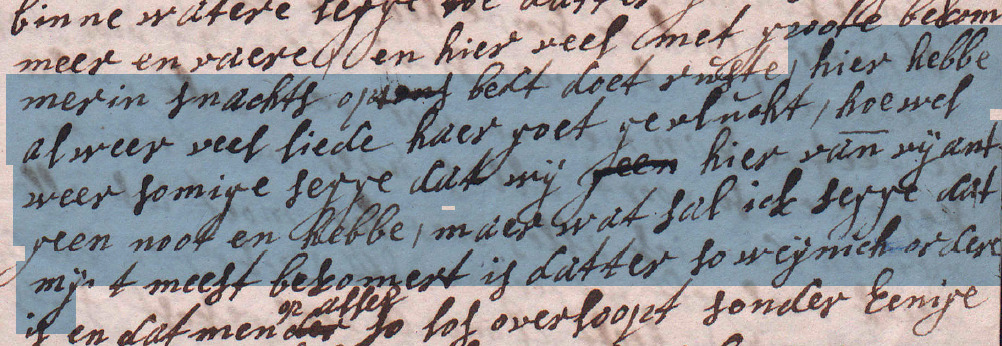 binne watere segge
meer en vaere en hier veel met groote bekom
merin snachts op tens bedt doet ruste, hier hebbe
alweer veel liede haer goet gevlucht, hoewel
weer somige segge dat wij geen hier van vijant
geen noot en hebbe, maer wat sal ick segge dat
mij t meest bekomert is datter so weijnich ordere
is en datmen der op alles so los overloopt sonder Eenige